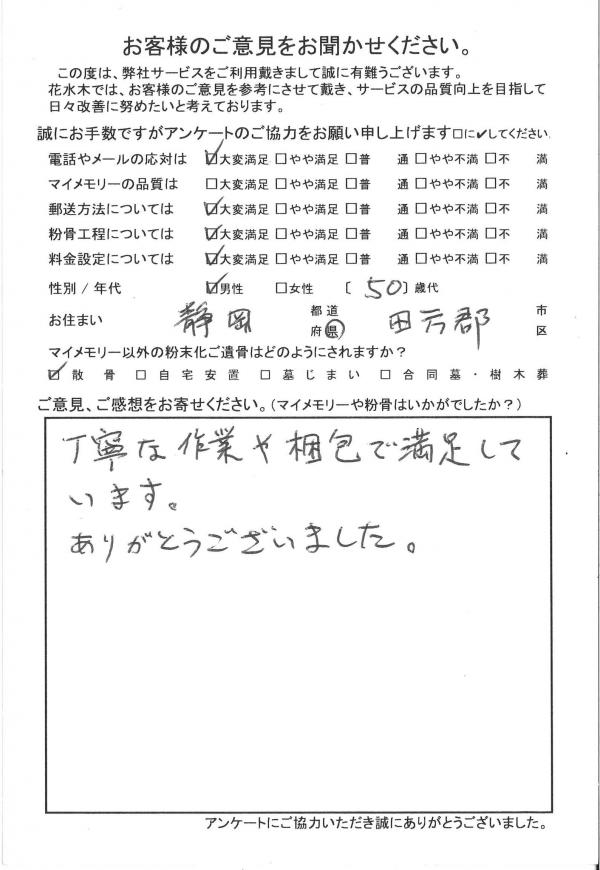 お客様のご意見をお聞かせください。
この度は、弊社サービスをご利用戴きまして誠に有難うございます。
花水木では、お客様のご意見を参考にさせて戴き、サービスの品質向上を目指して
日々改善に努めたいと考えております。
誠にお手数ですがアンケートのご協力をお願い申し上げます□に✔してください。
電話やメールの応対は ☑大変満足 □やや満足 □普 通 □やや不満 □不 満
マイメモリーの品質は □大変満足 □やや満足 □普 通 □やや不満 □不 満
郵送方法については ☑大変満足 □やや満足 □普 通 □やや不満 □不 満
粉骨工程については ☑大変満足 □やや満足 □普 通 □やや不満 □不 満
料金設定については ☑大変満足 □やや満足 □普 通 □やや不満 □不 満
性別 / 年代 ☑男性 □女性 [ 50 ]歳代
お住まい 静岡 都道府県 田方郡 市区
マイメモリー以外の粉末化ご遺骨はどのようにされますか？
☑散骨 □自宅安置 □墓じまい □合同墓・樹木葬
ご意見、ご感想をお寄せください。(マイメモリーや粉骨はいかがでしたか？)
丁寧な作業や梱包で満足して
います。
ありがとうございました。
アンケートにご協力いただき誠にありがとうございました。